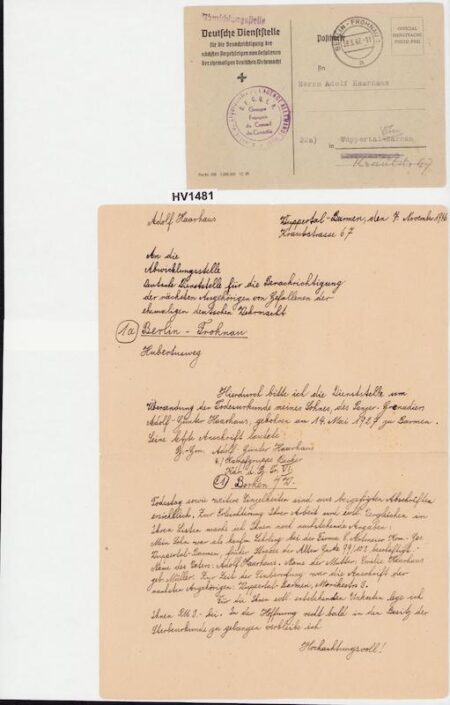 Abwicklungsstelle
Deutsche Dienststelle
für die Benachrichtigung der
nächsten Angehörigen von Gefallenen
der ehemaligen deutschen Wehrmacht
Postkarte
An
Herrn Adolf Haarhaus
22a)
in Wuppertal-Barmen
Krautstr 67
BERLIN-FROHNAU
OFFICIAL
Groupe
Français
du Conseil
de Contrôle
HV1481
Adolf Haarhaus
Wuppertal-Barmen, den 7. November 1946
Krautstrasse 67
An die
Abwicklungsstelle
deutsche Dienststelle für die Benachrichtigung
der nächsten Angehörigen von Gefallenen der
ehemaligen deutschen Wehrmacht
(1a) Berlin - Frohnau
Hubertusweg
Hierdurch bitte ich die Dienststelle um
Übersendung der Sterbeurkunde meines Sohnes, des Panzer-Grenadiers
Adolf-Günter Haarhaus, geboren am 14. Mai 1927 zu Barmen.
Seine letzte Anschrift lautete
Adolf-Günter Haarhaus
(21) Borken i/W.
Todestag sowie weitere Einzelheiten sind aus beigefügten Abschriften
ersichtlich. Zur Erleichterung Ihrer Arbeit und zwecks Vergleichen in
Ihren Listen mache ich Ihnen noch nachstehende Angaben:
Mein Sohn war als kaufm. Lehrling bei der Firma
Wuppertal-Barmen, beschäftigt.
Name des Vaters: Adolf Haarhaus. Name der Mutter: Haarhaus
geb. Müller. Zur Zeit der Einberufung war die Anschrift der
nächsten Angehörigen: Wuppertal-Barmen,
Für die Ihnen evtl. entstehenden Unkosten lege ich
Ihnen RM 3.- bei. In der Hoffnung recht bald in den Besitz der
Sterbeurkunde zu gelangen verbleibe ich
Hochachtungsvoll!